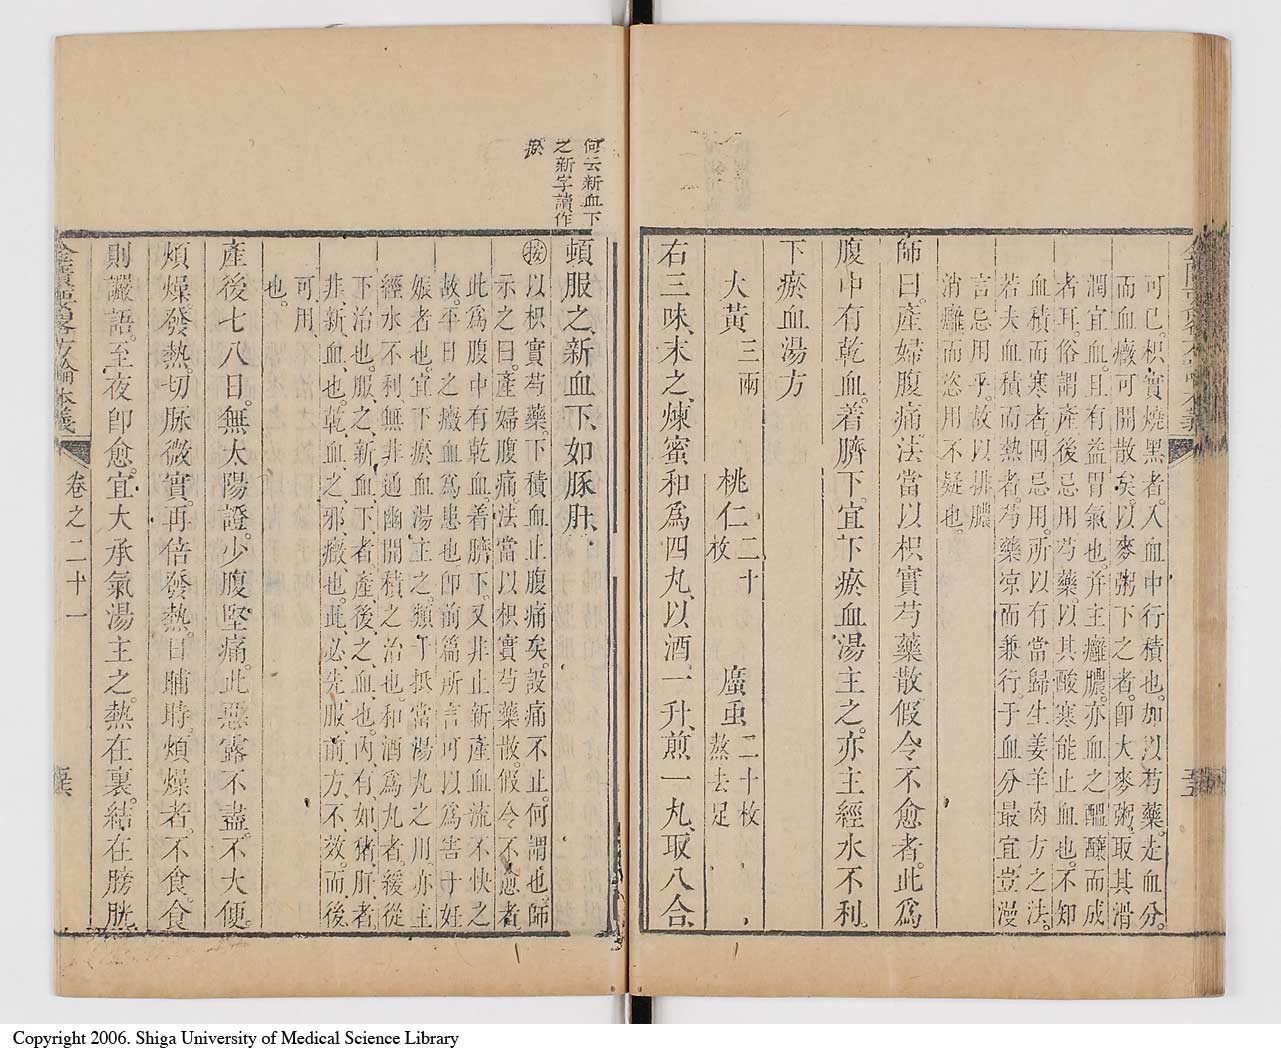 可已。枳實燒黑者。入血中行積也。加以芍藥。走血分。
而血癥可開散矣。以麥粥下之者。卽大麥粥。取其滑
潤宜血。且有益胃氣也。幷主癰膿。亦血之醞釀而成
者耳。俗謂產後忌用芍藥。以其酸寒能止血也。不知
血積而寒者。固忌用。所以有當歸生姜羊肉方之法。
若夫血積而熱者。芍藥凉而兼行。于血分最宜。豈漫
言忌用乎。故以排膿
消癰而恣用不疑也。
師曰。產婦腹痛。法當以枳實芍藥散。假令不愈者。此爲
腹中有乾血。着臍下。宜下瘀血湯主之。亦主經水不利。
下瘀血湯方
大黃三兩 桃仁二十枚 䗪虫二十枚熬去足
右三味。末之。煉蜜和爲四丸。以酒一升。煎一丸。取八合。
何云新血下
之新字讀作
瘀
頓服之、新血下、如豚肝、
㊞按以枳實芍藥。下積血止腹痛矣。設痛不止。何謂也。師
示之曰。產婦腹痛。法當以枳實芍藥散。假令不愈者
此爲腹中有乾血。着臍下。又非止新產血流不快之
故。平日之癥血爲患也。卽前篇所言可以爲害于妊
娠者也。宜下瘀血湯主之。類于抵當湯丸之用。亦主
經水不利。無非通幽開積之治也。和酒爲丸者。緩從
下治也。服之、新血、下者、產後之血也。內有、如猪肝者、
非、新血也、乾血之、邪、癥也。此必、先服、前方、不效。而後、
可用、
也。
產後七八日。無太陽證。少腹堅痛。此惡露不盡。不大便。
煩燥。發熱。切脉微實。再倍發熱。日晡時。煩燥者。不食。食
則讝語。至夜卽愈。宜大承氣湯主之。熱在裏。結在膀胱
卷之二十一